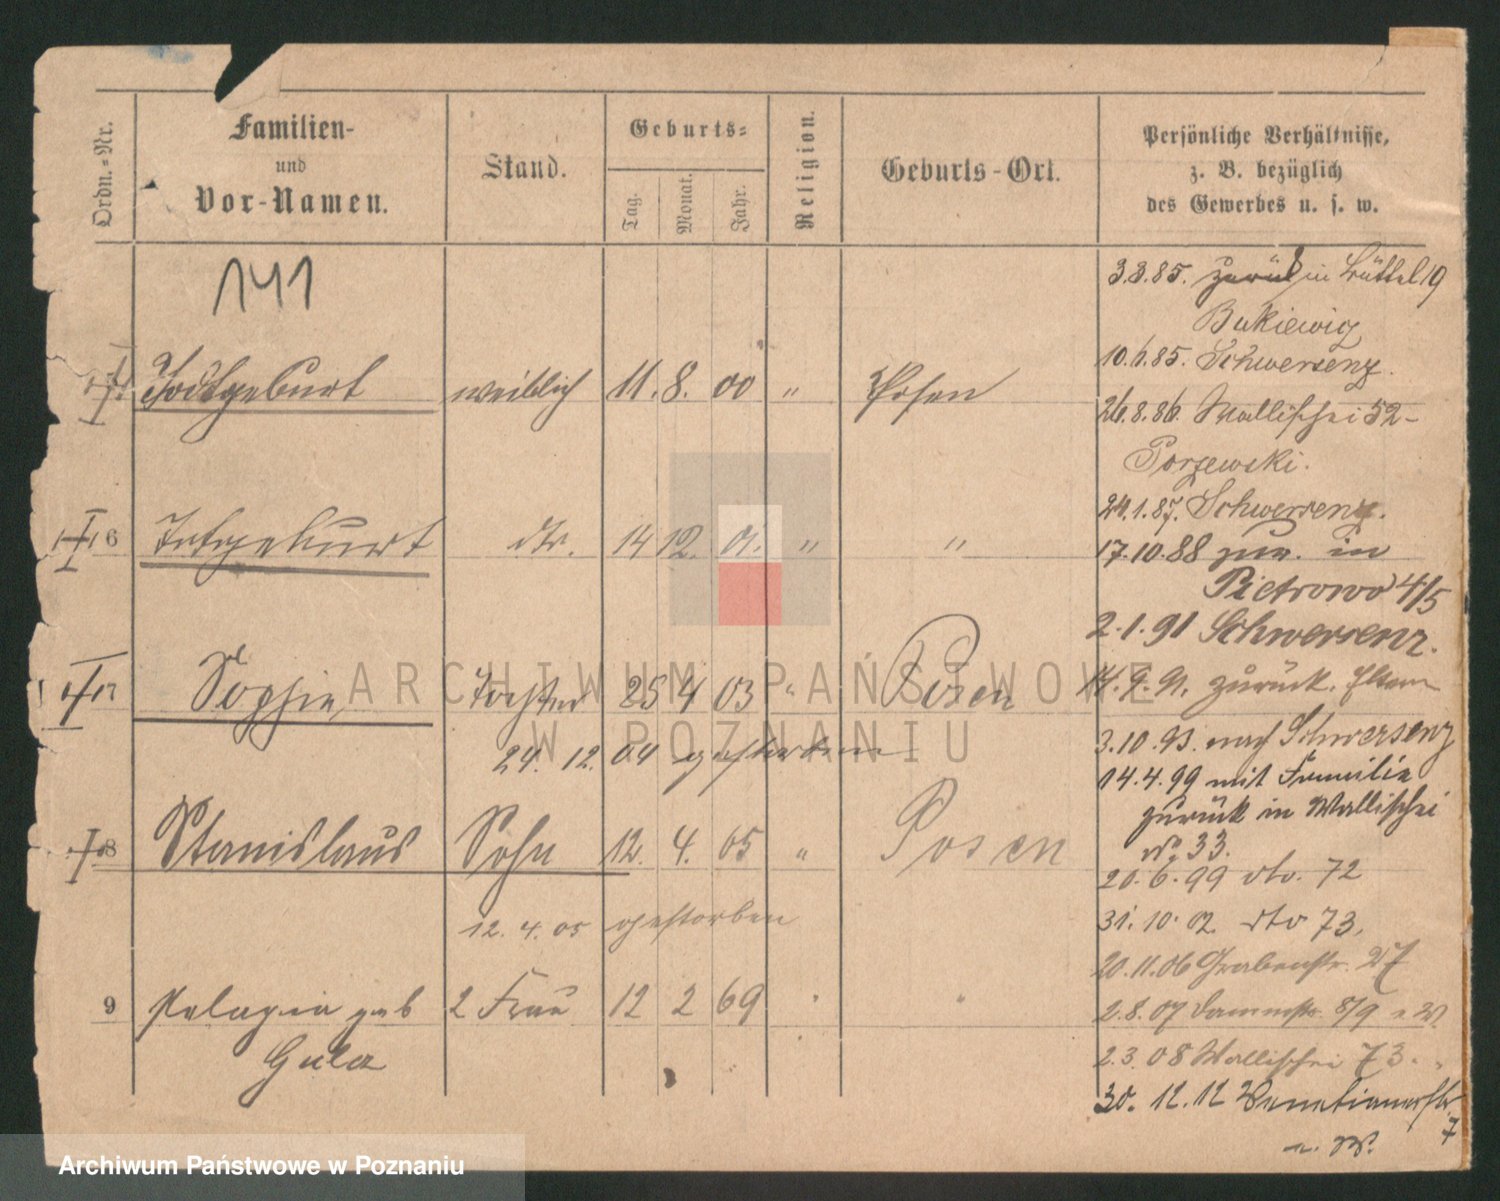 Ordn.-Nr.
Familien-
und
Vor-Namen.
Stand.
Geburts-
Tag. Monat. Jahr.
Religion.
Geburts-Ort.
Persönliche Verhältnisse,
z. B. bezüglich
des Gewerbes u. s. w.
141
Todtgeburt weiblich 11. 8. 00 " Posen
6 Todtgeburt dto. 14 12. 01. " "
7 Sophie Tochter 25 4 03 " Posen
24. 12. 04 gestorben
8 Stanislaus Sohn 12. 4. 05 " Posen
12. 4. 05 gestorben
9 Pelagia geb 2 Frau 12 2 69
Gulcz
3.3.85. zurück in
10.6.85. Schwersenz.
26.8.86. Wallischei 52-
24.1.87. Schwersenz.
17.10.88 zur. in
Pietrowo 4/5
2.1.91 Schwersenz.
14.9.91. zurück. Eltern
3.10.93. nach Schwersenz
14.4.99 mit Familie
zurück in Wallischei
No 33.
20.6.99 dto. 72
31.10.02. dto 73.
20.11.06 Grabenstr. 27
2.8.07 Dammstr. 8/9 b. W.
2.3.08 Wallischei 73.
30.12.12 Venetianerstr.
7
b. W.
ARCHIWUM PAŃSTWOWE
W POZNANIU
Archiwum Państwowe w Poznaniu